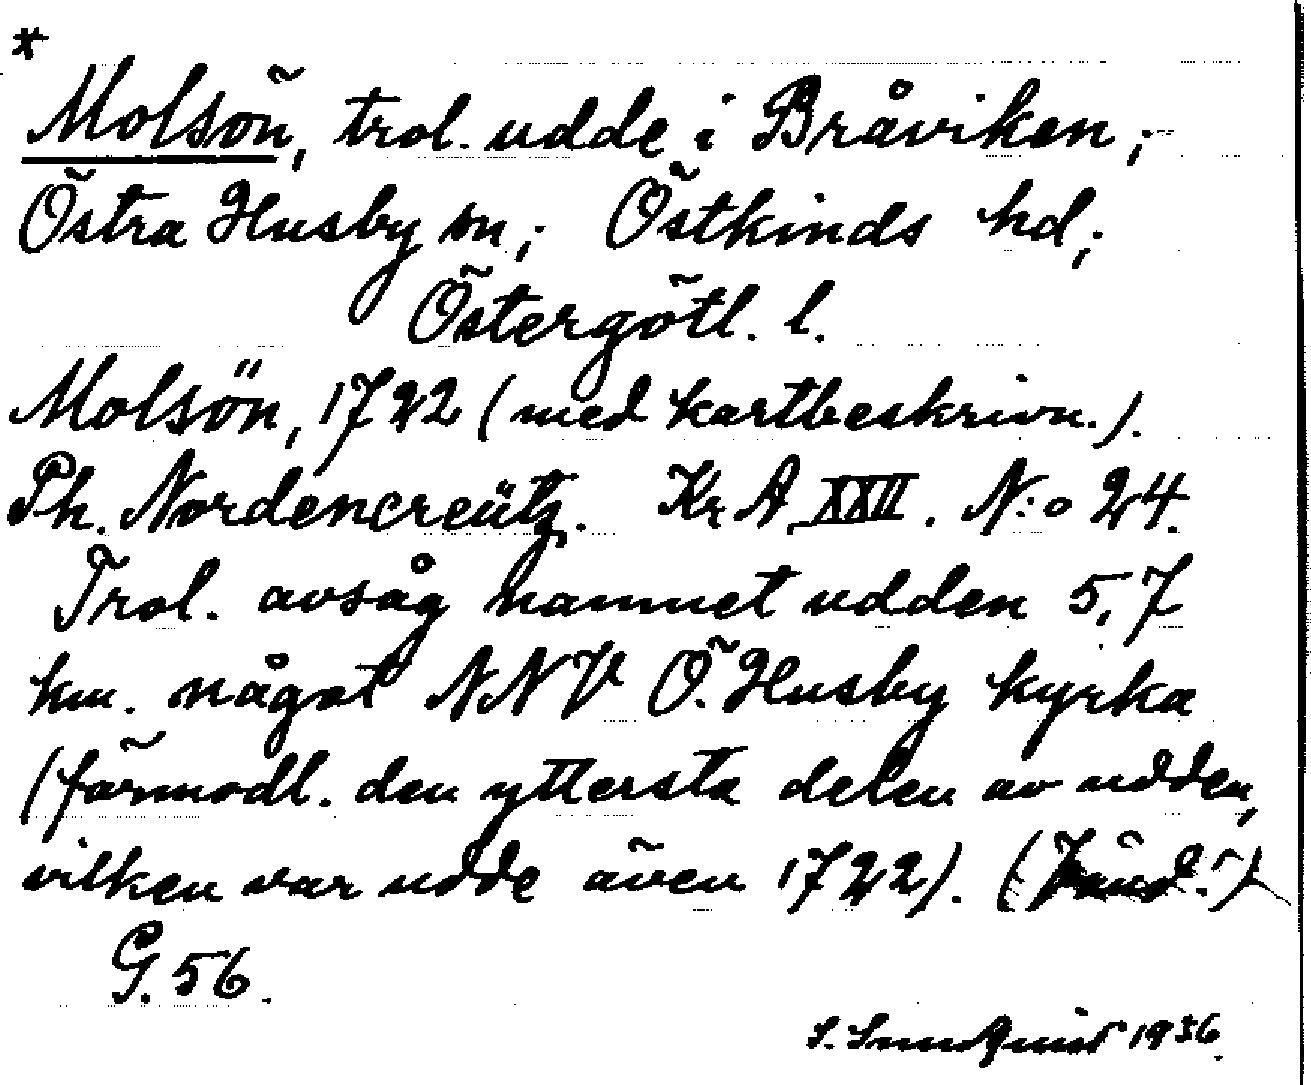 *
Molsö̃n, trol. udde i Bråviken;
Östra Husby sn; Östkinds hd;
Östergötl. l.
Molsön, 1722 (med kartbeskrivn.).
Ph. Nordencreütz. Kr A XXII. N:o 24.
Trol. avsåg namnet udden 5,7
km. något NNV Ö. Husby kyrka
(förmodl. den yttersta delen av udden,
vilken var udde även 1722). (
G. 56.
S. Sundquist 1936.